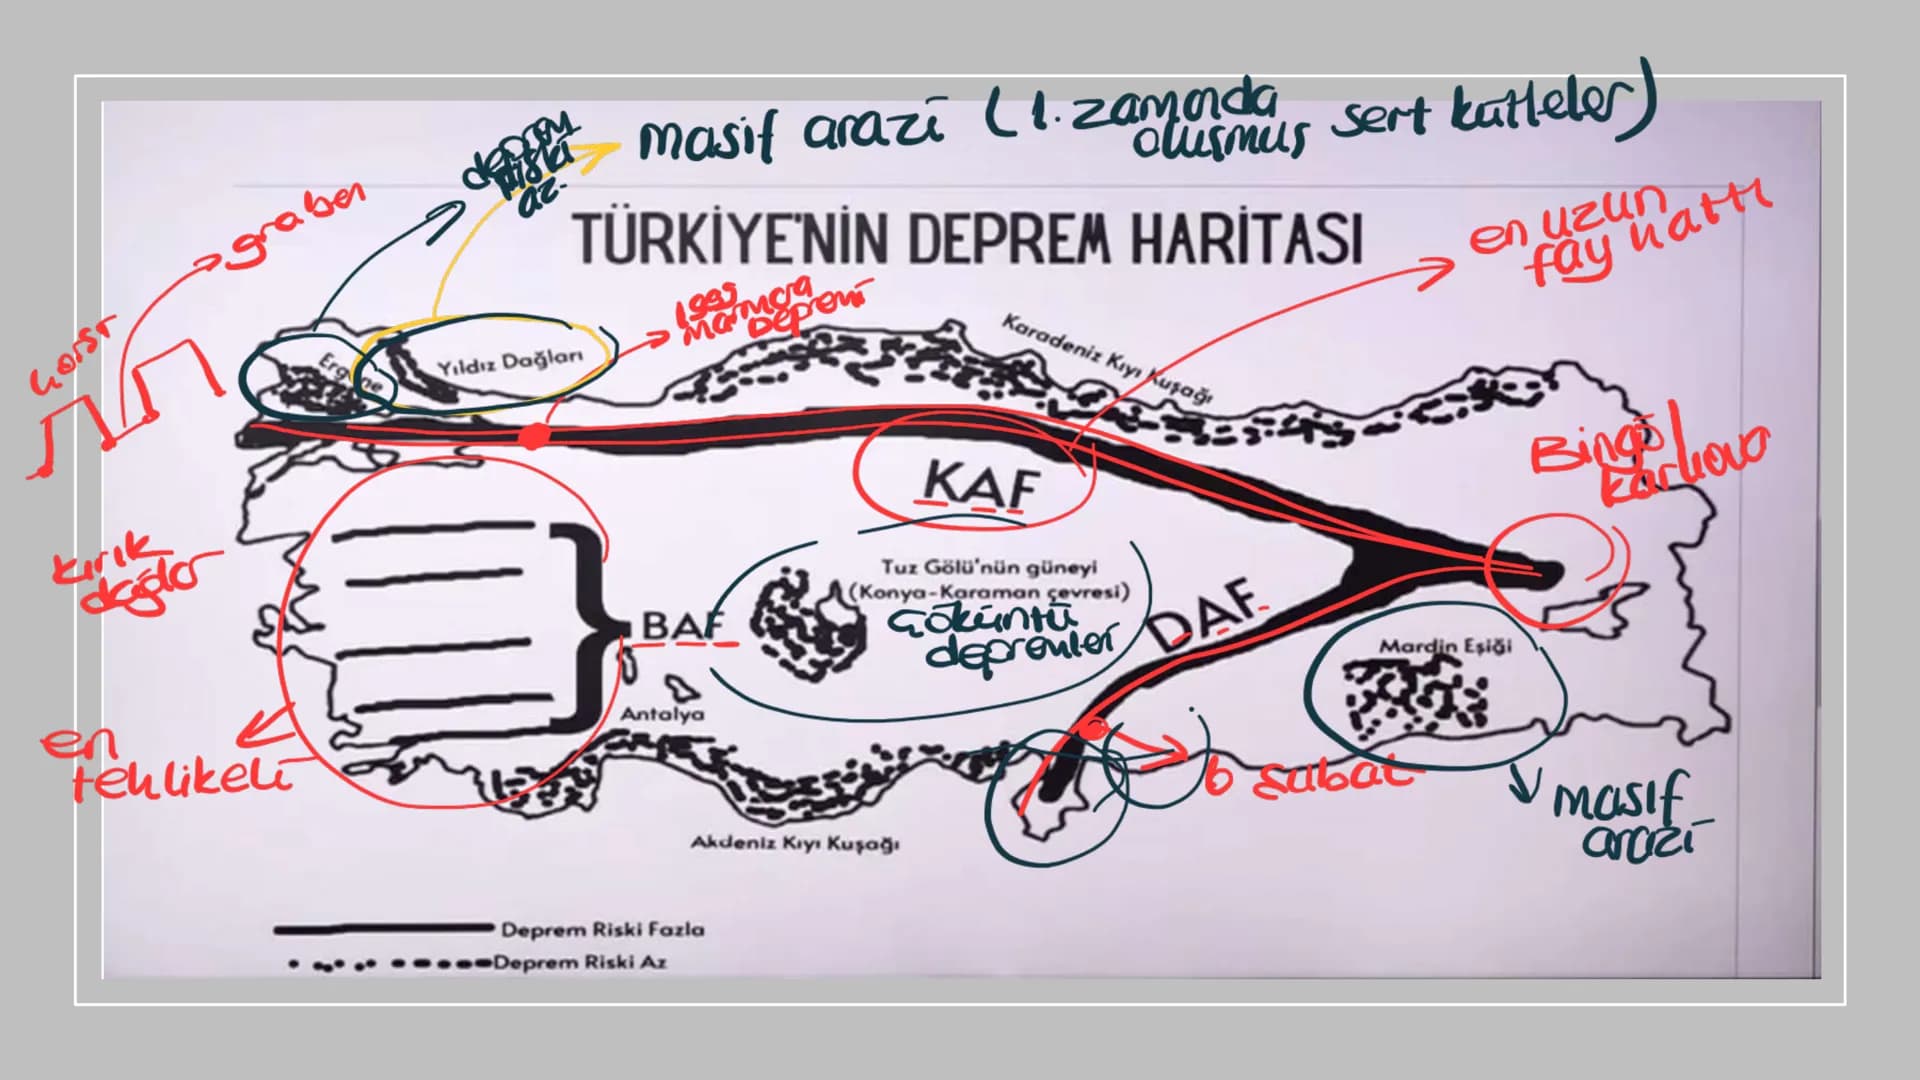 masif arazi (1. zamanda
oluşmuş sert kütleler)
deprem
riski
az.
graben
horst
TÜRKİYE'NİN DEPREM HARİTASI
en uzun
fay hattı
1999
marmara
Depremi
Ergene
Yıldız Dağları
Karadeniz Kıyı Kuşağı
Bingöl
karlıova
KAF
kırık
dağlar
Tuz Gölü'nün güneyi
(Konya-Karaman çevresi)
çöküntü
depremler
BAF
DAF
Mardin Eşiği
Antalya
en
tehlikeli
6 Şubat
masif
arazi
Akdeniz Kıyı Kuşağı
Deprem Riski Fazla
Deprem Riski Az